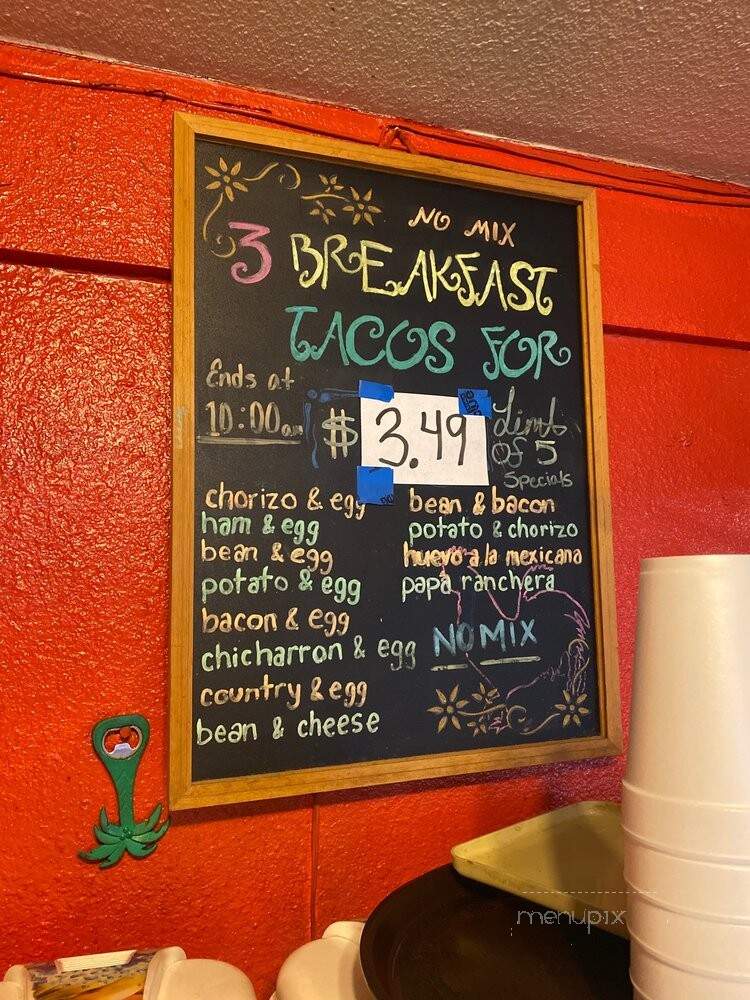 NO MIX
3 BREAKFAST
TACOS FOR
Ends at
10:00am
$3.49
Limit
of 5
Specials
chorizo & egg
ham & egg
bean & egg
potato & egg
bacon & egg
chicharron & egg
country & egg
bean & cheese
bean & bacon
potato & chorizo
huevo a la mexicana
papa ranchera
NO MIX
menupix